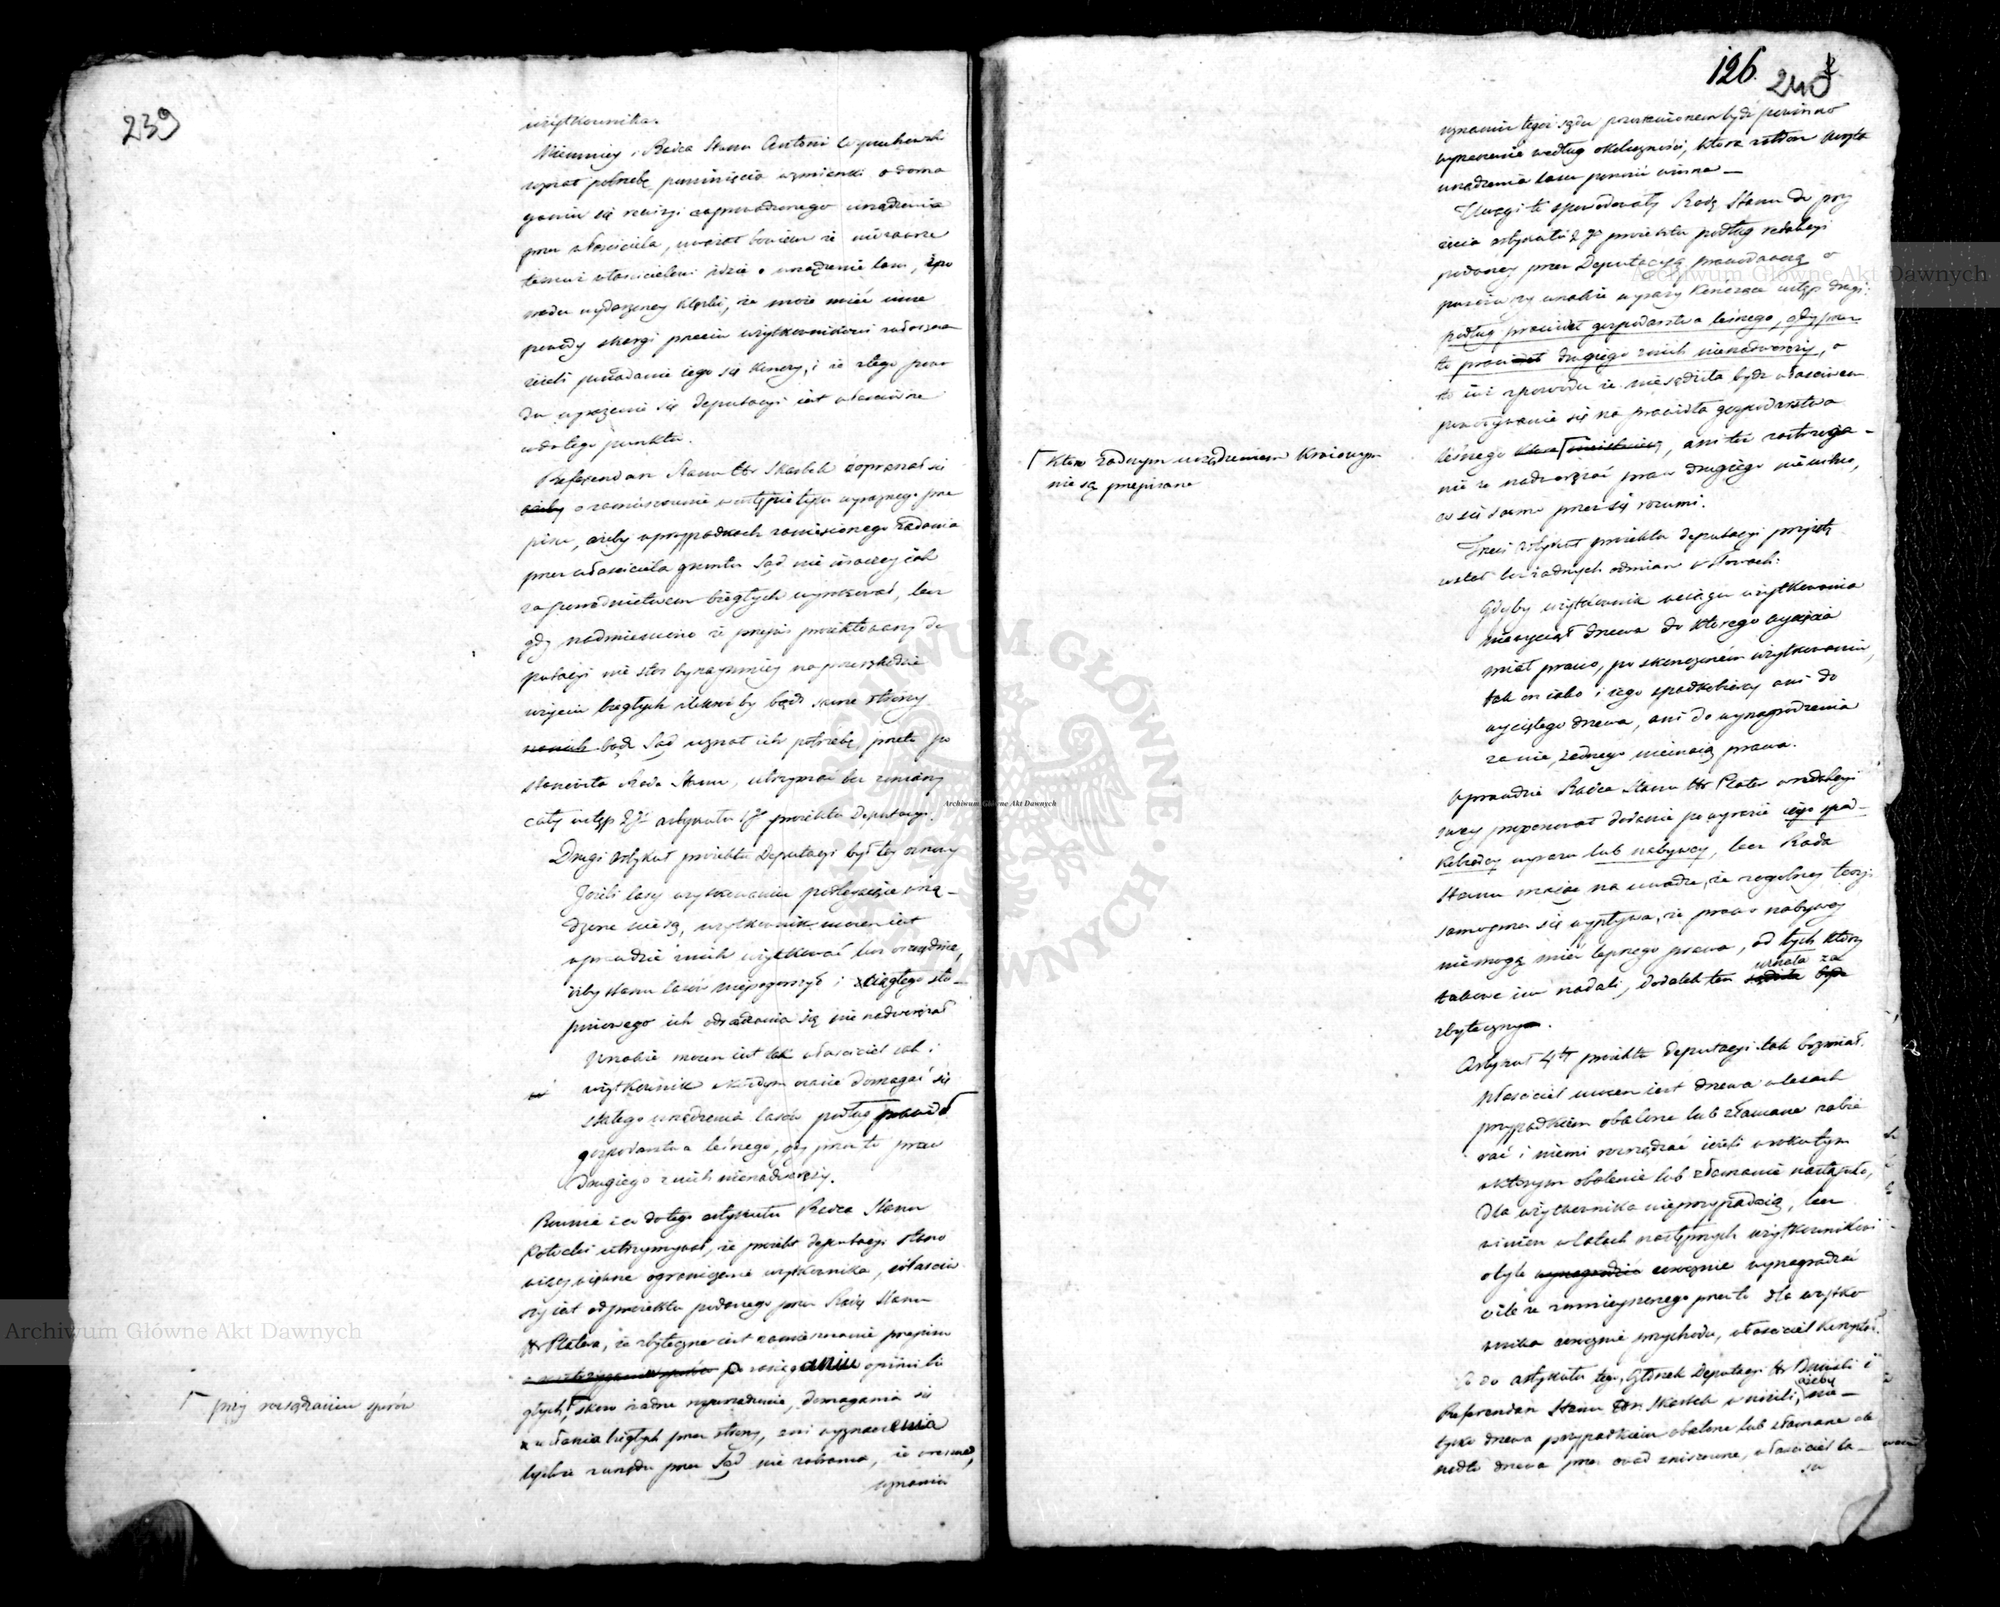 239
użytkownika.
Niemniey i Radca Stanu Antoni Wyczechowski
uznał potrzebę pominięcia wzmianki o doma
ganiu się rewizyi zaprowadzonego urządzenia
przez właściciela, uważał bowiem że nie zawsze
temuż właścicielowi idzie o urządzenie lasu, z po
wodu wydarzoney klęski, że może mieć inne
powody skargi przeciw użytkownikowi zwłaszcza
jeżeli posiadanie iego się kończy, i że z tego powo
du wyrażenie się deputacyi iest właściwsze
co do tego punktu.
Referendarz Stanu Hr Skarbek dopraszał się
o zamieszczenie w ustępie tym wyraźnego prze
pisu, ażeby w przypadkach zaniesionego żądania
przez właściciela gruntu Sąd nie inaczey iak
za pośrednictwem biegłych wyrokował, lecz
gdy nadmieniono że przepis proiektowany De
putacyi nie stoi bynaymniey na przeszkodzie
użyciu biegłych ilekroć by bądź same strony
bądź Sąd uznał ich potrzebę, przeto po
stanowiła Rada Stanu, utrzymać bez zmiany
cały ustęp 2gi artykułu 1go proiektu Deputacyi.
Drugi artykuł proiektu Deputacyi był tey osnowy
Jeżeli lasy użytkowaniu podlegaiące urzą-
dzone nie są, użytkownik mocen iest
wprawdzie z nich użytkować lecz oszczędnie,
iżby stanu lasów nie pogorszył i ciągłego sto-
pniowego ich odradzania się nie nadwerężał
Wszakże mocen iest tak właściciel iak i
użytkownik w każdym czasie domagać się
stałego urządzenia lasów podług prawideł
gospodarstwa leśnego, gdy przez to praw
drugiego z nich nienadweręży.
Równie i co do tego artykułu Radca Stanu
Potocki utrzymywał, że proiekt deputacyi stano
wiący ograniczenie użytkownika, właściw
szy iest od proiektu podanego przez Radcę Stanu
Hr Platera, że zbyteczne iest zamieszczenie przepisu
zasięganiu opinii bie
głych, skoro żadne rozporządzenie, domagania się
użycia biegłych przez strony, ani wyznaczenia
tychże z urzędu przez Sąd nie zabrania, że wreszcie,
uznaniu
Γ przy rozsądzaniu sporów
126. 240
uznaniu tegoż sądu pozostawionem bydź powinno
wyrzeczenie według okoliczności, która z stron koszta
urządzenia lasu ponosić winna —
Uwagi te spowodowały Radę Stanu do przy
ięcia artykułu 2go proiektu podług redakcyi
podaney przez Deputacyą prawodawczą o
puszczaiąc wszakże wyrazy kończące ustęp drugi:
podług prawideł gospodarstwa leśnego, gdy przez
to praw drugiego z nich nienadweręży, a
to iuż z powodu że nie sądziła bydź właściwem
powoływanie się na prawidła gospodarstwa
leśnego, ani też zastrzega-
nie że nadwerężać praw drugiego nie wolno,
co się samo przez się rozumi.
Γ które żadnym urządzeniem Kraiowym
nie są przepisane
Trzeci artykuł proiektu deputacyi przyjęty
został bez żadnych odmian w słowach:
Gdyby użytkownik w ciągu użytkowania
nie wyciął drzewa do którego wycięcia
miał prawo, po skończonem użytkowaniu,
tak on iako i iego spadkobiercy ani do
wyciętego drzewa, ani do wynagrodzenia
za nie, żadnego nie maią prawa.
Wprawdzie Radca Stanu Hr Plater w redakcyi
swey proponował dodanie po wyrazie iego spad-
kobiercy wyrazu lub nabywcy, lecz Rada
Stanu maiąc na uwadze, że z ogólney teoryi
samo przez się wypływa, że prawo nabywcy
nie mogą mieć lepszego prawa, od tych którzy
takowe im nadali, dodatek ten uznała za
zbyteczny.
Artykuł 4ty proiektu deputacyi tak brzmiał.
Właściciel mocen iest drzewa w lasach
przypadkiem obalone lub złamane zabie
rać i niemi rozrządzać ieżeli w roku tym
w którym obalenie lub złamanie nastąpiło,
dla użytkownika nie przypadaią, lecz
winien w latach następnych użytkownikowi
o tyle corocznie wynagradzać
o ile ze zmnieyszonego przez to dla użytko
wnika corocznie przychodu, właściciel korzystał.
Co do artykułu tego, Członek Deputacyi Hr Dzieński i
Referendarz Stanu Hr. Skarbek wnieśli, ażeby nie-
tylko drzewa przypadkiem obalone lub złamane ale
nadto drzewa przez owad zniszczone, właściciel la-
su